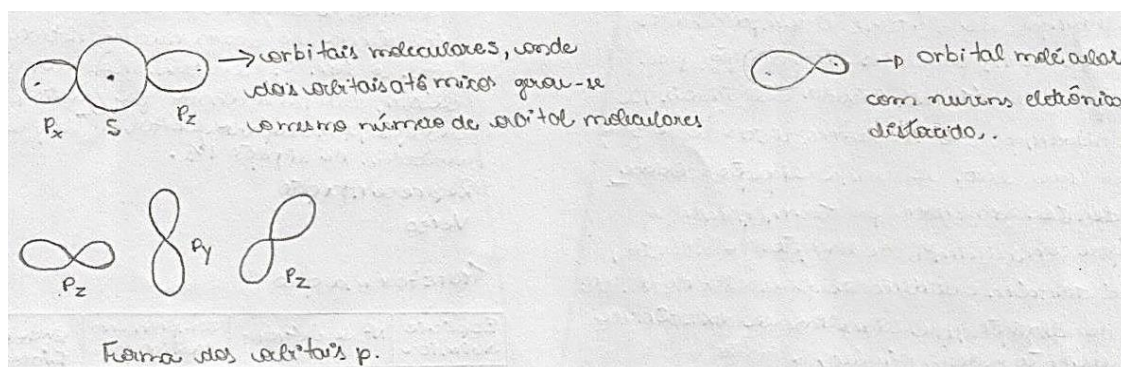 → orbitais moleculares, onde
dos orbitais atômicos gerou-se
o mesmo número de orbital moleculares
Px S Pz
→ orbital molécular
com nuvens eletrônica
distorcido,.
Pz Py Pz
Forma dos orbitais p.